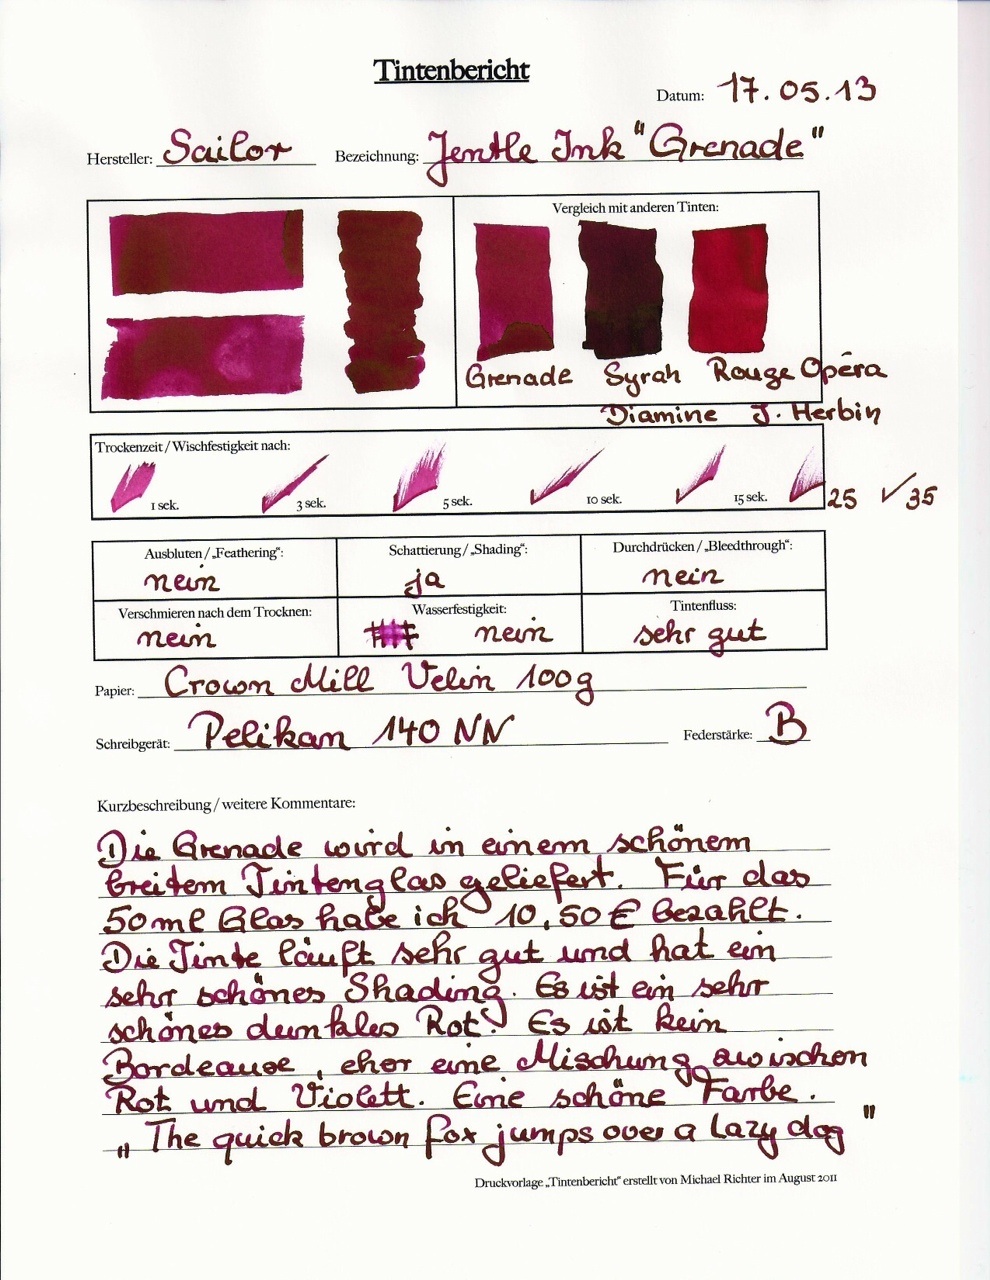 Tintenbericht
Datum: 17.05.13
Hersteller: Sailor Bezeichnung: Jentle Ink "Grenade"
Vergleich mit anderen Tinten:
Grenade Syrah Rouge Opéra
Diamine J. Herbin
Trockenzeit / Wischfestigkeit nach:
1 sek. 3 sek. 5 sek. 10 sek. 15 sek. 25 ✓ 35
Ausbluten / „Feathering": Schattierung / „Shading": Durchdrücken / „Bleedthrough":
nein ja nein
Verschmieren nach dem Trocknen: Wasserfestigkeit: Tintenfluss:
nein nein sehr gut
Papier: Crown Mill Velin 100g
Schreibgerät: Pelikan 140 NN Federstärke: B
Kurzbeschreibung / weitere Kommentare:
Die Grenade wird in einem schönem
breitem Tintenglas geliefert. Für das
50ml Glas habe ich 10,50€ bezahlt.
Die Tinte läuft sehr gut und hat ein
sehr schönes Shading. Es ist ein sehr
schönes dunkles Rot. Es ist kein
Bordeaux, eher eine Mischung zwischen
Rot und Violett. Eine schöne Farbe.
„The quick brown fox jumps over a lazy dog"
Druckvorlage „Tintenbericht" erstellt von Michael Richter im August 2011